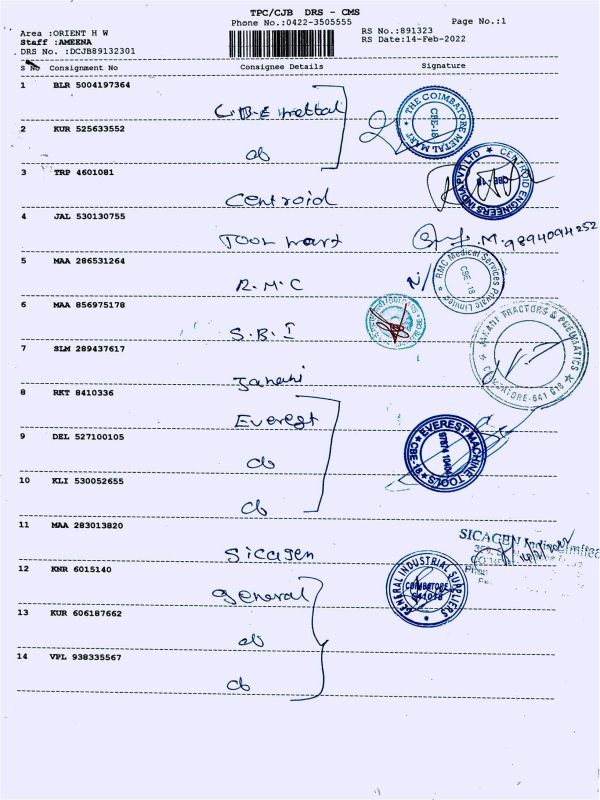 TPC/CJB DRS - CMS
Phone No.:0422-3505555
Page No.:1
Area :ORIENT H W
Staff :AMEENA
DRS No. :DCJB89132301
RS No.:891323
RS Date:14-Feb-2022
S No Consignment No Consignee Details Signature
1 BLR 5004197364
C.B.E mettal
THE COIMBATORE METAL MART
CBE-18
2 KUR 525633552
do
3 TRP 4601081
Centroid
CENTROID ENGINEERS INDIA PVT LTD
CBE-18
4 JAL 530130755
Tool mart
M.9894094252
5 MAA 286531264
R.M.C
RMC Medical Services Private Limited
CBE-18
6 MAA 856975178
S.B.I
7 SLM 289437617
Janani
JANANI TRACTORS & PNEUMATICS
COIMBATORE-641 018
8 RKT 8410336
Everest
EVEREST MACHINE TOOLS
CBE-18
9 DEL 527100105
do
10 KLI 530052655
do
11 MAA 283013820
Sicagen
SICAGEN India Limited
12 KNR 6015140
General
GENERAL INDUSTRIAL SUPPLIERS
COIMBATORE
641018
13 KUR 606187662
do
14 VPL 938335567
do